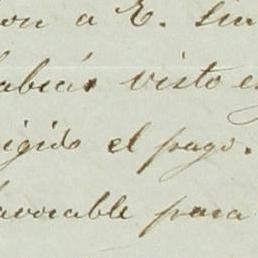 on a E. sin
abia visto e
igido el pago.
avorable para